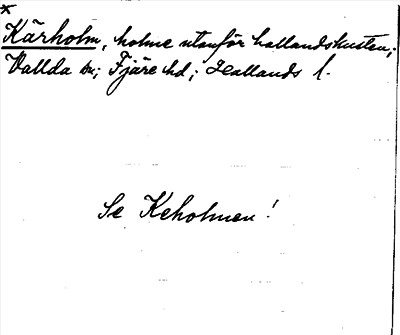 *
Kärholm, holme utanför hallandskusten;
Vallda sn; Fjäre hd; Hallands l.
Se Keholmen!